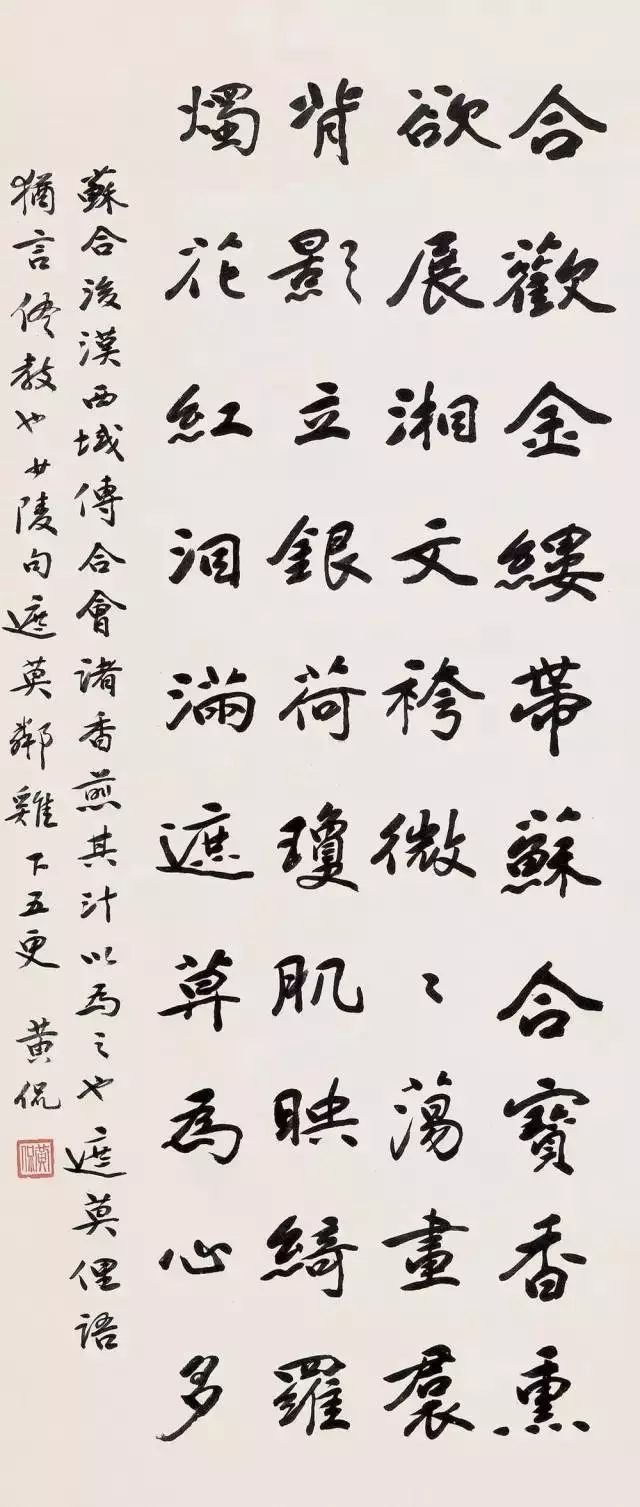 合歡金縷帶蘇合寶香熏
欲展湘文袴微〻蕩畫裠
背影立銀荷瓊肌映綺羅
燭花紅淚滿遮莫為心多
蘇合後漢西域傳合會諸香煎其汁以為之也遮莫俚語
猶言儘教也少陵句遮莫鄰雞下五更 黄侃
黄侃